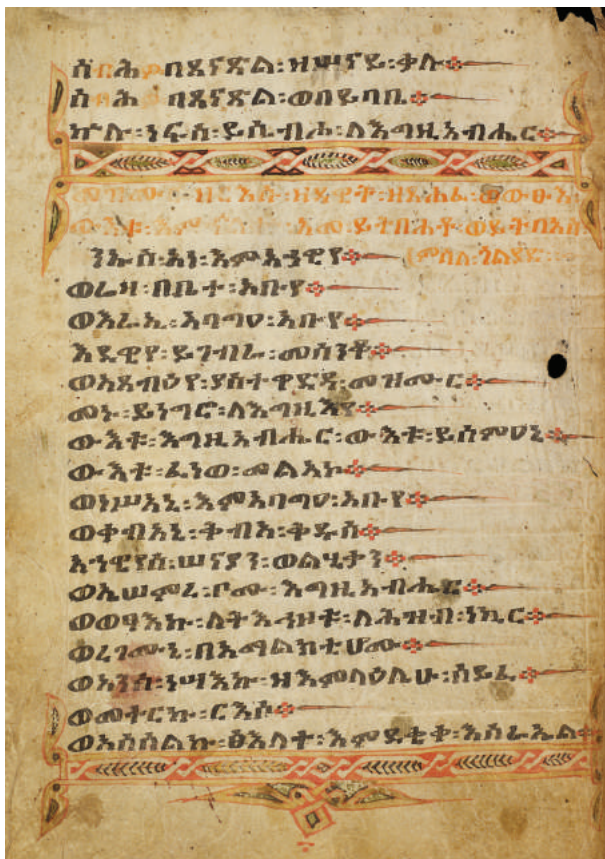 ሰብሕዎ በጸናጽል፡ዘሠናይ፡ቃሉ
ሰብሕዎ በጸናጽል፡ወበይባቤ
ኵሉ፡ነፍስ፡ይሴብሖ፡ለእግዚአብሔር
ዘርእሱ፡ዘዳዊት፡ዘጸሐፈ፡
ውእቱ፡ አመ፡ይትበሐት፡ወይትበአስ
ምስለ፡ጎልያድ
ንኡስ፡አነ፡እምአኀዊየ
ወሬዛ፡በቤተ፡አቡየ
ወእሬኢ፡አባግዐ፡አቡየ
እደዊየ፡ይገብራ፡መሰንቆ
ወአጻብዕየ፡ያስተዋድዳ፡መዝሙር
መኑ፡ይነግሮ፡ለእግዚእየ
ውእቱ፡እግዚአብሔር፡ውእቱ፡ይሰምዐኒ
ውእቱ፡ፈነወ፡መልአኮ
ወነሥአኒ፡እምአባግዐ፡አቡየ
ወቀብአኒ፡ቅብአ፡ቅዱሰ
አኀዊየሰ፡ሠናያን፡ወልሂቃን
ወኢሠምረ፡ቦሙ፡እግዚአብሔር
ወወፃእኩ፡ለተአኅዞቱ፡ለሕዝብ፡ነኪር
ወረገመኒ፡በአማልክቲሆሙ
ወአንሰ፡ነሣእኩ፡ዘእምላዕሌሁ፡ሰይፈ
ወመተርኩ፡ርእሶ
ወአሰሰልኩ፡ፅእለተ፡እምደቂቀ፡እስራኤል